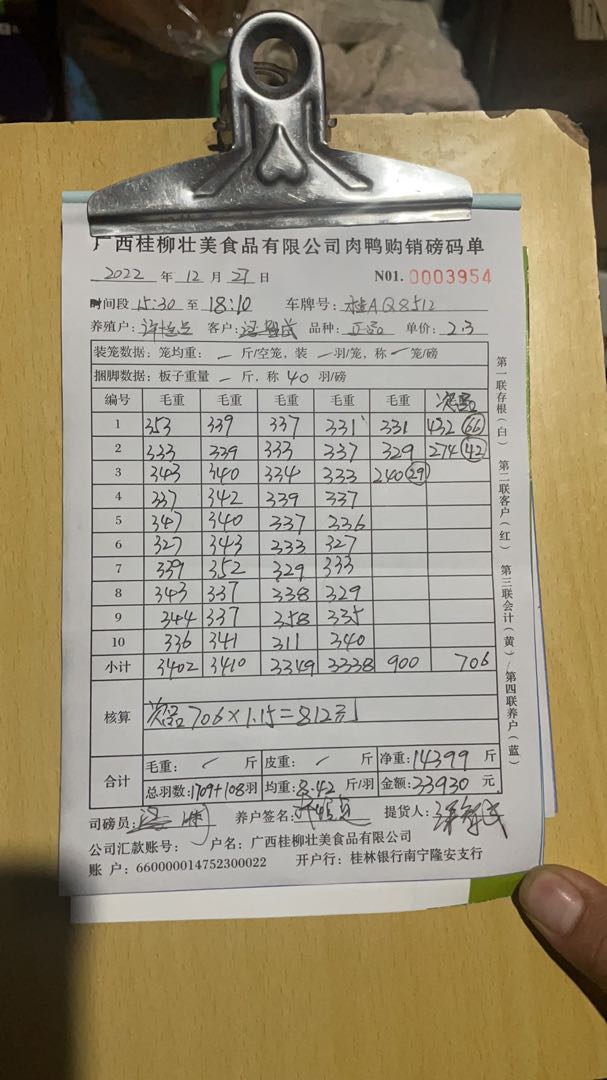 广西桂柳壮美食品有限公司肉鸭购销磅码单
2022 年 12 月 27 日 N01. 0003954
时间段 15:30 至 18:10 车牌号: 桂AQ8512
养殖户: 客户: 品种: 正品 单价: 2.3
装笼数据: 笼均重: 斤/空笼, 装 羽/笼, 称 笼/磅
捆脚数据: 板子重量 一 斤, 称 40 羽/磅
编号 毛重 毛重 毛重 毛重 毛重 次品
1 353 339 337 331 331 432 66
2 333 339 333 337 329 274 42
3 343 340 334 333 240 29
4 337 342 339 337
5 347 340 337 336
6 327 343 333 327
7 339 352 329 333
8 343 337 338 329
9 344 337 358 335
10 336 341 311 340
小计 3402 3410 3349 3338 900 706
核算 次品 706×1.15=812元
合计 毛重: 斤 皮重: 斤 净重: 14399 斤
总羽数: 1709+108羽 均重: 8.42 斤/羽 金额: 33930 元
司磅员: 养户签名: 提货人:
公司汇款账号: 户名: 广西桂柳壮美食品有限公司
账 户: 660000014752300022 开户行: 桂林银行南宁隆安支行
第一联存根(白) 第二联客户(红) 第三联会计(黄) 第四联养户(蓝)